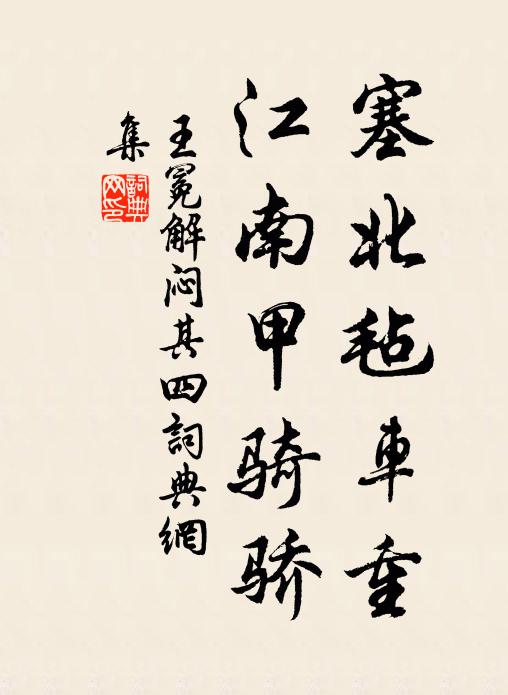 塞北毡車重
江南甲骑骄
王冕解闷其四詞典網
集
詞典
网印